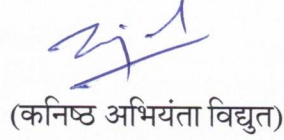 (कनिष्ठ अभियंता विद्युत)